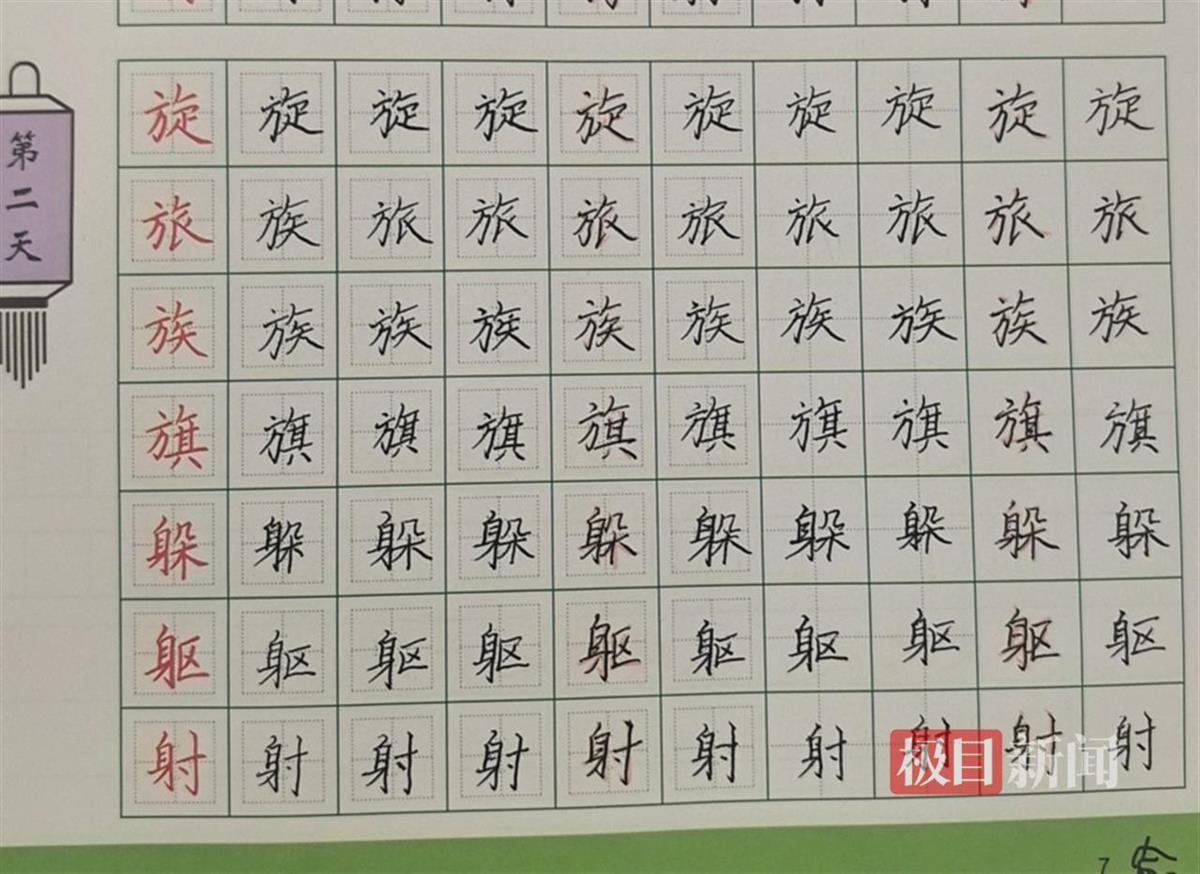 第二天
旋旋旋旋旋旋旋旋旋旋
旅族旅旅旅旅旅旅旅旅
族族族族族族族族族族
旗旗旗旗旗旗旗旗旗旗
躲躲躲躲躲躲躲躲躲躲
躯躯躯躯躯躯躯躯躯躯
射射射射射射射射射射
极目新闻
7